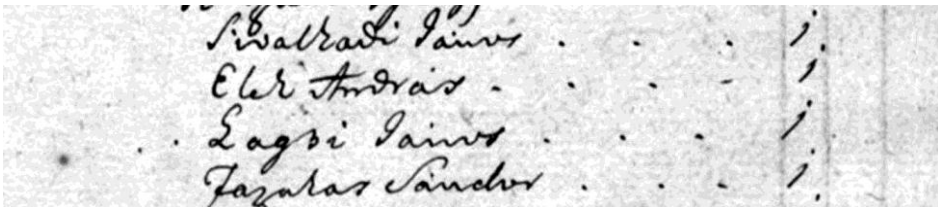 Sivalkadi János . . . 1.
Elek András . . . . 1
Lagzi János . . . 1.
Fazakas Sándor . . . 1.